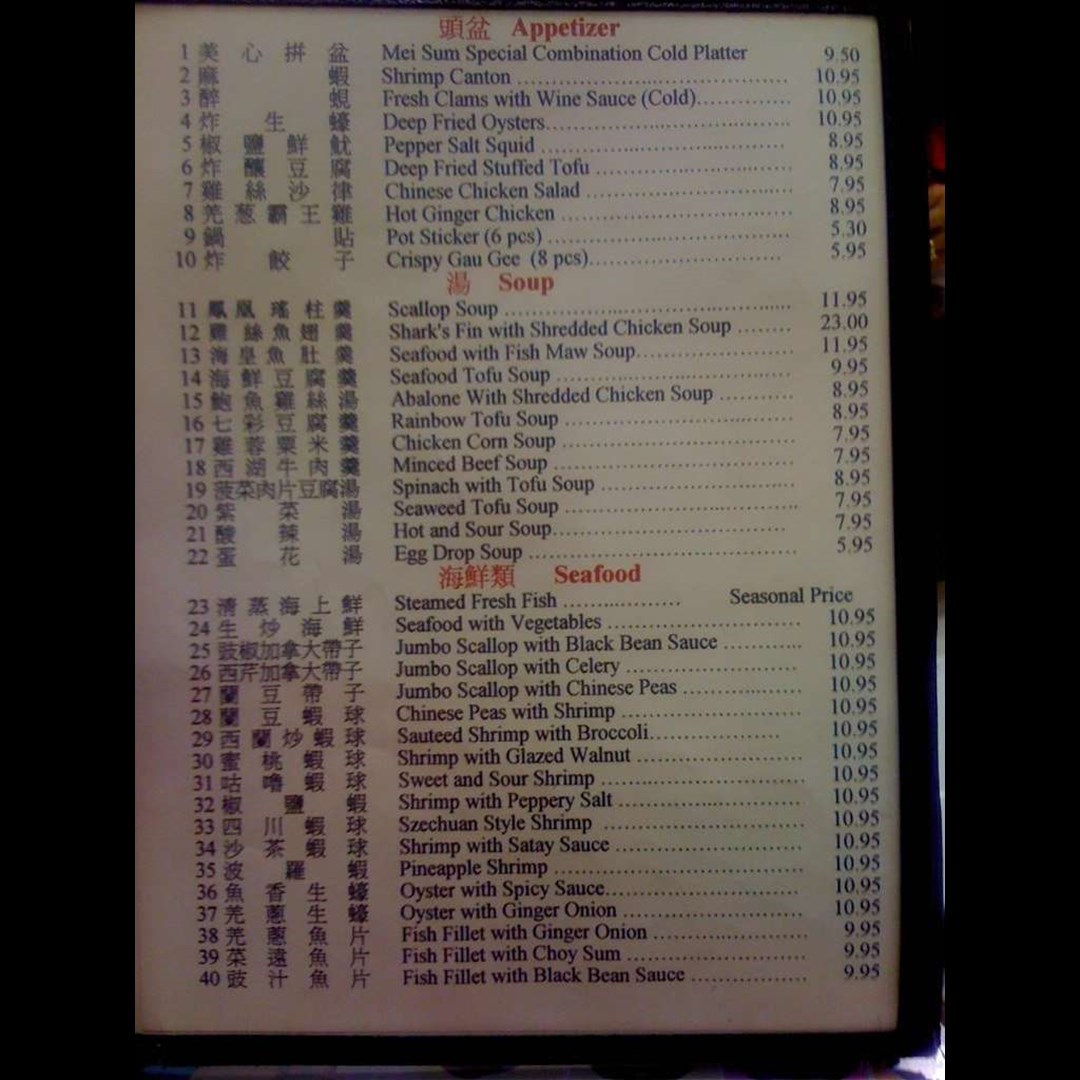 頭盆 Appetizer
1 美心拼盆 Mei Sum Special Combination Cold Platter 9.50
2 麻蝦 Shrimp Canton 10.95
3 醉蜆 Fresh Clams with Wine Sauce (Cold) 10.95
4 炸生蠔 Deep Fried Oysters 10.95
5 椒鹽鮮魷 Pepper Salt Squid 8.95
6 炸釀豆腐 Deep Fried Stuffed Tofu 8.95
7 雞絲沙律 Chinese Chicken Salad 7.95
8 羌葱霸王雞 Hot Ginger Chicken 8.95
9 鍋貼 Pot Sticker (6 pcs) 5.30
10 炸餃子 Crispy Gau Gee (8 pcs) 5.95
湯 Soup
11 鳳凰瑤柱羹 Scallop Soup 11.95
12 雞絲魚翅羹 Shark's Fin with Shredded Chicken Soup 23.00
13 海皇魚肚羹 Seafood with Fish Maw Soup 11.95
14 海鮮豆腐羹 Seafood Tofu Soup 9.95
15 鮑魚雞絲湯 Abalone With Shredded Chicken Soup 8.95
16 七彩豆腐羹 Rainbow Tofu Soup 8.95
17 雞蓉粟米羹 Chicken Corn Soup 7.95
18 西湖牛肉羹 Minced Beef Soup 7.95
19 菠菜肉片豆腐湯 Spinach with Tofu Soup 8.95
20 紫菜湯 Seaweed Tofu Soup 7.95
21 酸辣湯 Hot and Sour Soup 7.95
22 蛋花湯 Egg Drop Soup 5.95
海鮮類 Seafood
23 清蒸海上鮮 Steamed Fresh Fish Seasonal Price
24 生炒海鮮 Seafood with Vegetables 10.95
25 豉椒加拿大帶子 Jumbo Scallop with Black Bean Sauce 10.95
26 西芹加拿大帶子 Jumbo Scallop with Celery 10.95
27 蘭豆帶子 Jumbo Scallop with Chinese Peas 10.95
28 蘭豆蝦球 Chinese Peas with Shrimp 10.95
29 西蘭炒蝦球 Sauteed Shrimp with Broccoli 10.95
30 蜜桃蝦球 Shrimp with Glazed Walnut 10.95
31 咕嚕蝦球 Sweet and Sour Shrimp 10.95
32 椒鹽蝦 Shrimp with Peppery Salt 10.95
33 四川蝦球 Szechuan Style Shrimp 10.95
34 沙茶蝦球 Shrimp with Satay Sauce 10.95
35 波羅蝦 Pineapple Shrimp 10.95
36 魚香生蠔 Oyster with Spicy Sauce 10.95
37 羌蔥生蠔 Oyster with Ginger Onion 10.95
38 羌蔥魚片 Fish Fillet with Ginger Onion 9.95
39 菜遠魚片 Fish Fillet with Choy Sum 9.95
40 豉汁魚片 Fish Fillet with Black Bean Sauce 9.95